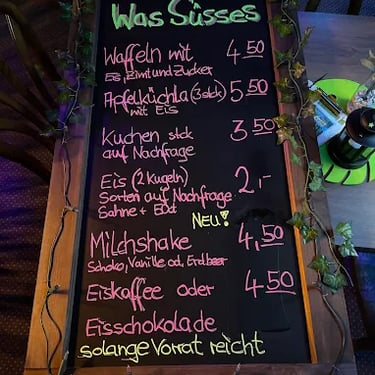 Was Süsses
Waffeln mit 4 50
Eis, Zimt und Zucker
Apfelküchla (3 stck) 5 50
mit Eis
Kuchen stck 3 50
auf Nachfrage
Eis (2 Kugeln) 2,-
Sorten auf Nachfrage
Sahne + 50ct
NEU!
Milchshake 4,50
Schoko, Vanille od. Erdbeer
Eiskaffee oder 4 50
Eisschokolade
solange Vorrat reicht